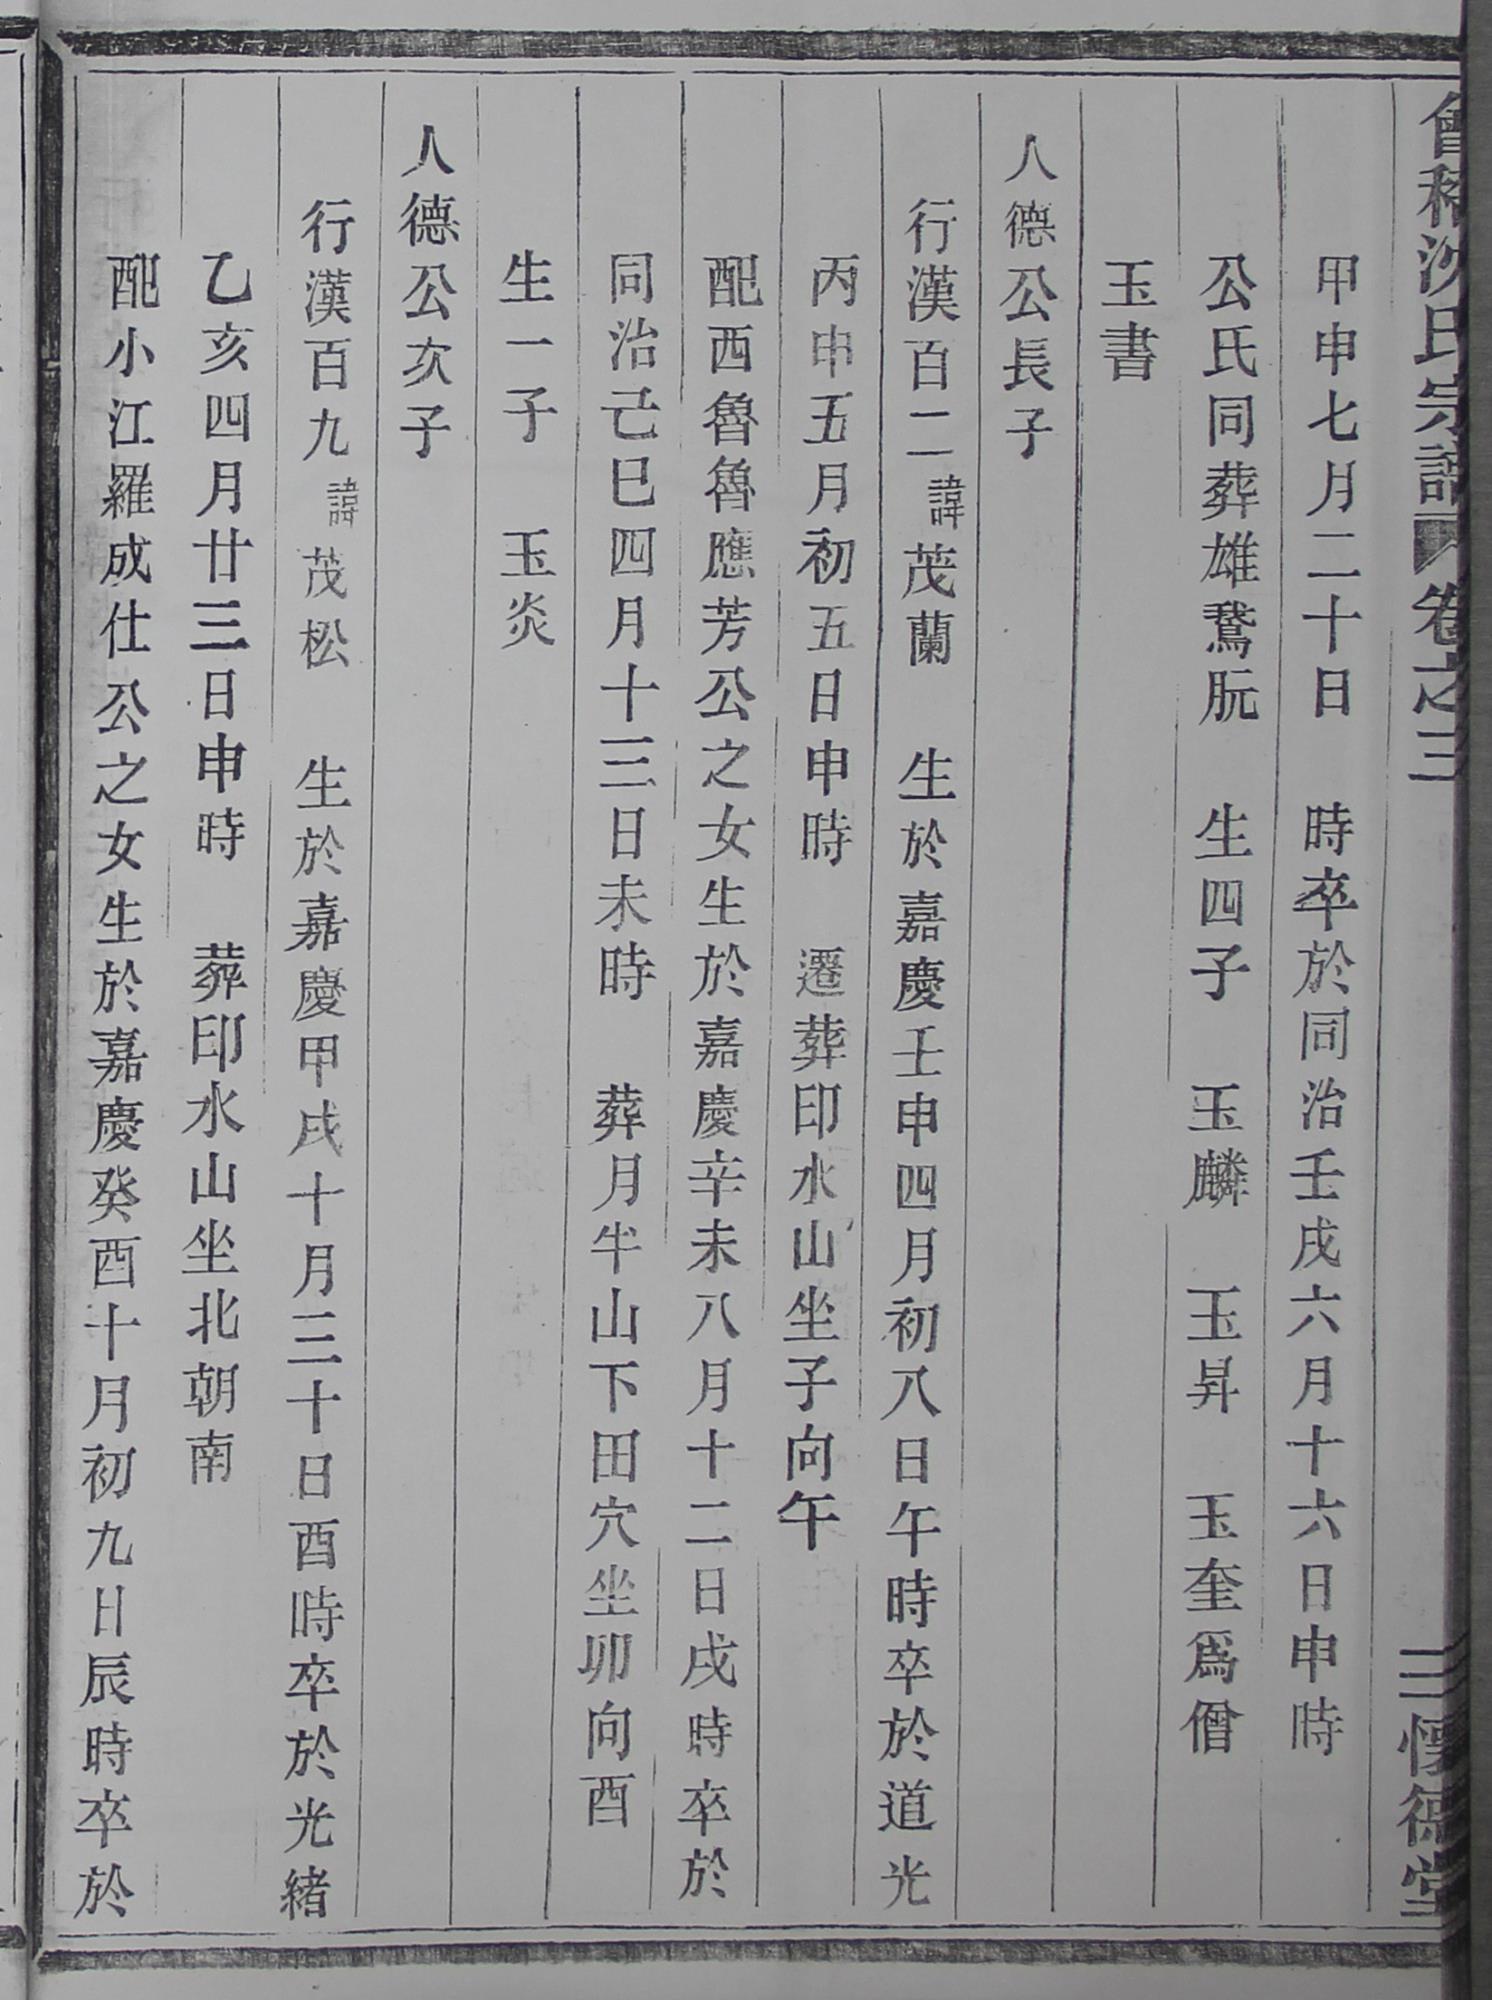 會稽沈氏宗譜 卷之三 二 懷德堂
甲申七月二十日 時卒於同治壬戌六月十六日申時
公氏同葬雄鵞朊 生四子 玉麟 玉昇 玉奎爲僧
玉書
人德公長子
行漢百二諱茂蘭 生於嘉慶壬申四月初八日午時卒於道光
丙申五月初五日申時 遷葬印水山坐子向午
配西魯魯應芳公之女生於嘉慶辛未八月十二日戌時卒於
同治己巳四月十三日未時 葬月半山下田穴坐卯向酉
生一子 玉炎
人德公次子
行漢百九諱茂松 生於嘉慶甲戌十月三十日酉時卒於光緒
乙亥四月廿三日申時 葬印水山坐北朝南
配小江羅成仕公之女生於嘉慶癸酉十月初九日辰時卒於